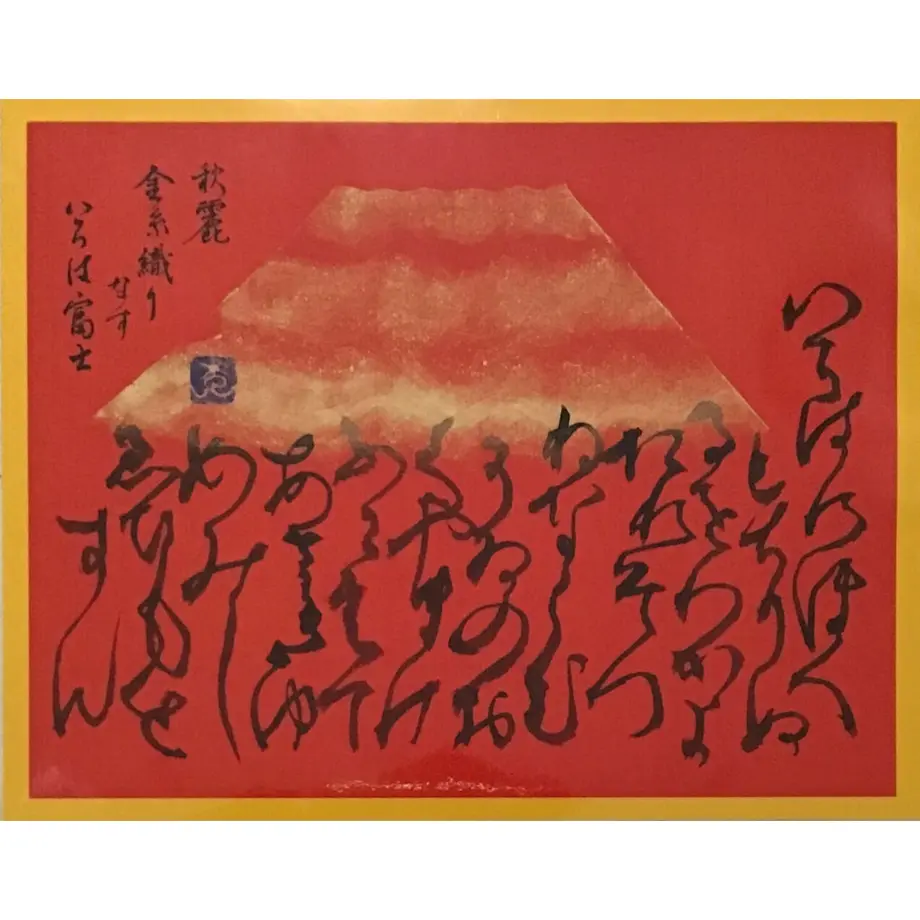 いろはにほへ
とちりぬ
るをわかよ
たれそつ
ねならむ
うゐのお
くやまけ
ふこえて
あさきゆ
めみし
ゑひもせ
すん
秋麗
金糸織り
なす
いろは富士